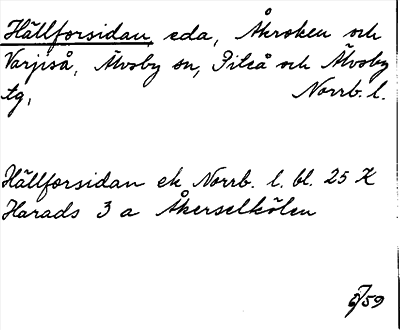 Hällforsidan, eda, Åkroken och
Varjiså, Älvsby sn, Piteå och Älvsby
tg, Norrb. l.
Hällforsidan ek Norrb. l. bl. 25 K
Harads 3 a Åkerselkölen
/59